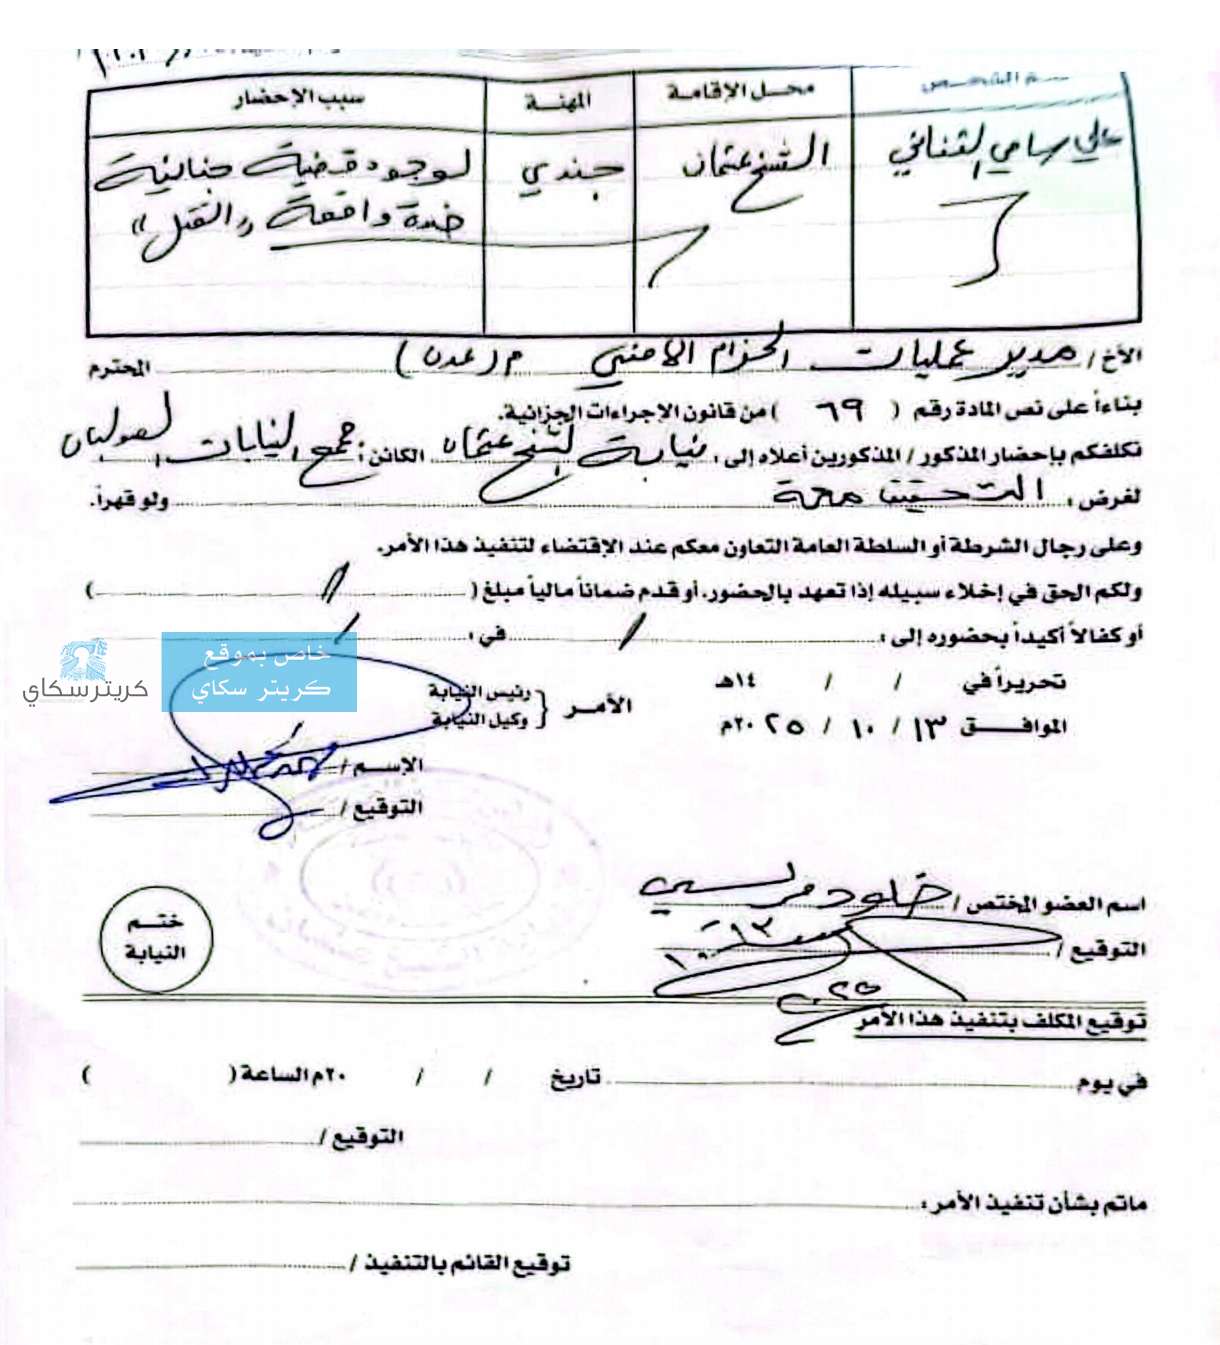 سم الشخص محل الإقامة المهنة سبب الإحضار
علي سامي الشيخ عثمان جندي لوجود قضية جنائية
ضده واقعة "القتل"
الأخ / مدير عمليات الحزام الأمني م (عدن) المحترم
بناءاً على نص المادة رقم ( ٦٩ ) من قانون الإجراءات الجزائية.
نكلفكم بإحضار المذكور / المذكورين أعلاه إلى : نيابة الشيخ عثمان الكائن : مجمع النيابات
لغرض : التحقيق معه ولو قهراً.
وعلى رجال الشرطة أو السلطة العامة التعاون معكم عند الإقتضاء لتنفيذ هذا الأمر.
ولكم الحق في إخلاء سبيله إذا تعهد بالحضور، أو قدم ضماناً مالياً مبلغ ( // )
أو كفالاً أكيداً بحضوره إلى : / في : /
خاص بموقع
كريتر سكاي
كريترسكاي
تحريراً في / / ١٤هـ
الموافق ١٣ / ١٠ / ٢٠٢٥م
الأمر { رئيس النيابة
وكيل النيابة
الإسم /
التوقيع /
اسم العضو المختص / خلود مرسي
التوقيع /
١٣
١٠
٢٠٢٥
ختم
النيابة
توقيع المكلف بتنفيذ هذا الأمر
في يوم تاريخ / / ٢٠م الساعة ( )
التوقيع /
ماتم بشأن تنفيذ الأمر :
توقيع القائم بالتنفيذ /